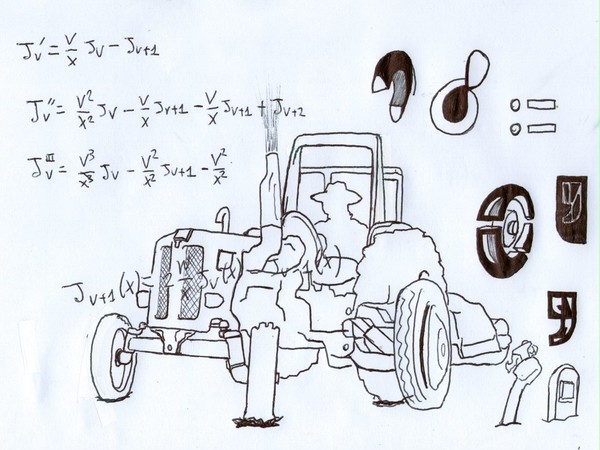 Jᵥ' = v/x Jᵥ - Jᵥ₊₁
Jᵥ'' = v²/x² Jᵥ - v/x Jᵥ₊₁ - v/x Jᵥ₊₁ + Jᵥ₊₂
Jᵥᴵᴵᴵ = v³/x³ Jᵥ - v²/x² Jᵥ₊₁ - v²/x²
Jᵥ₊₁(x)